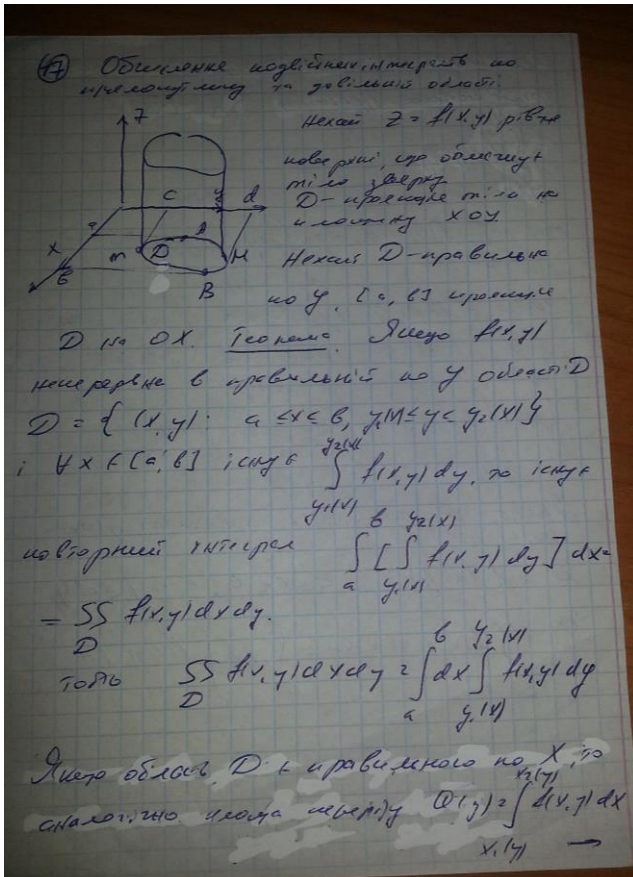 47 Обчислення подвійних інтегралів по
прямокутнику та довільній області.
Нехай z = f(x, y) рів-ня
поверхні, що обмежує
тіло зверху
D - проекція тіла на
площину XOY.
Нехай D - правильна
по y, [a, b] проекція
Z
C
d
A
m
D
H
X
a
B
B
D на OX. Теорема. Якщо f(x, y)
неперервна в правильній по y області D
D = { (x, y): a ≤ x ≤ b, y₁(x) ≤ y ≤ y₂(x) }
і ∀ x ∈ [a, b] існує ∫_{y₁(x)}^{y₂(x)} f(x, y) dy, то існує
повторний інтеграл ∫_a^b [ ∫_{y₁(x)}^{y₂(x)} f(x, y) dy ] dx =
= ∬_D f(x, y) dx dy.
тобто ∬_D f(x, y) dx dy = ∫_a^b dx ∫_{y₁(x)}^{y₂(x)} f(x, y) dy
Якщо область D є правильного по X, то
аналогічно Q(y) = ∫_{x₁(y)}^{x₂(y)} f(x, y) dx →